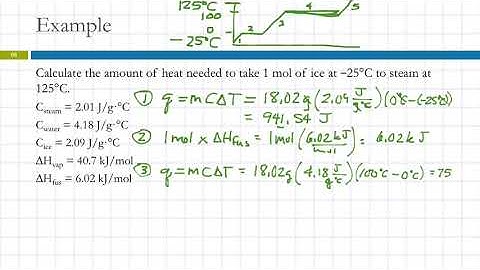 Example
125°C
100
0
-25°C
1 2 3 4 5
Calculate the amount of heat needed to take 1 mol of ice at −25°C to steam at
125°C.
C steam = 2.01 J/g·°C
C water = 4.18 J/g·°C
C ice = 2.09 J/g·°C
ΔH vap = 40.7 kJ/mol
ΔH fus = 6.02 kJ/mol
① q = mCΔT = 18.02g (2.09 J/g°C)(0°C-(-25°C))
= 941.54 J
② 1 mol x ΔH fus = 1 mol (6.02 kJ/mol) = 6.02 kJ
③ q = mCΔT = 18.02g (4.18 J/g°C)(100°C-0°C) = 75